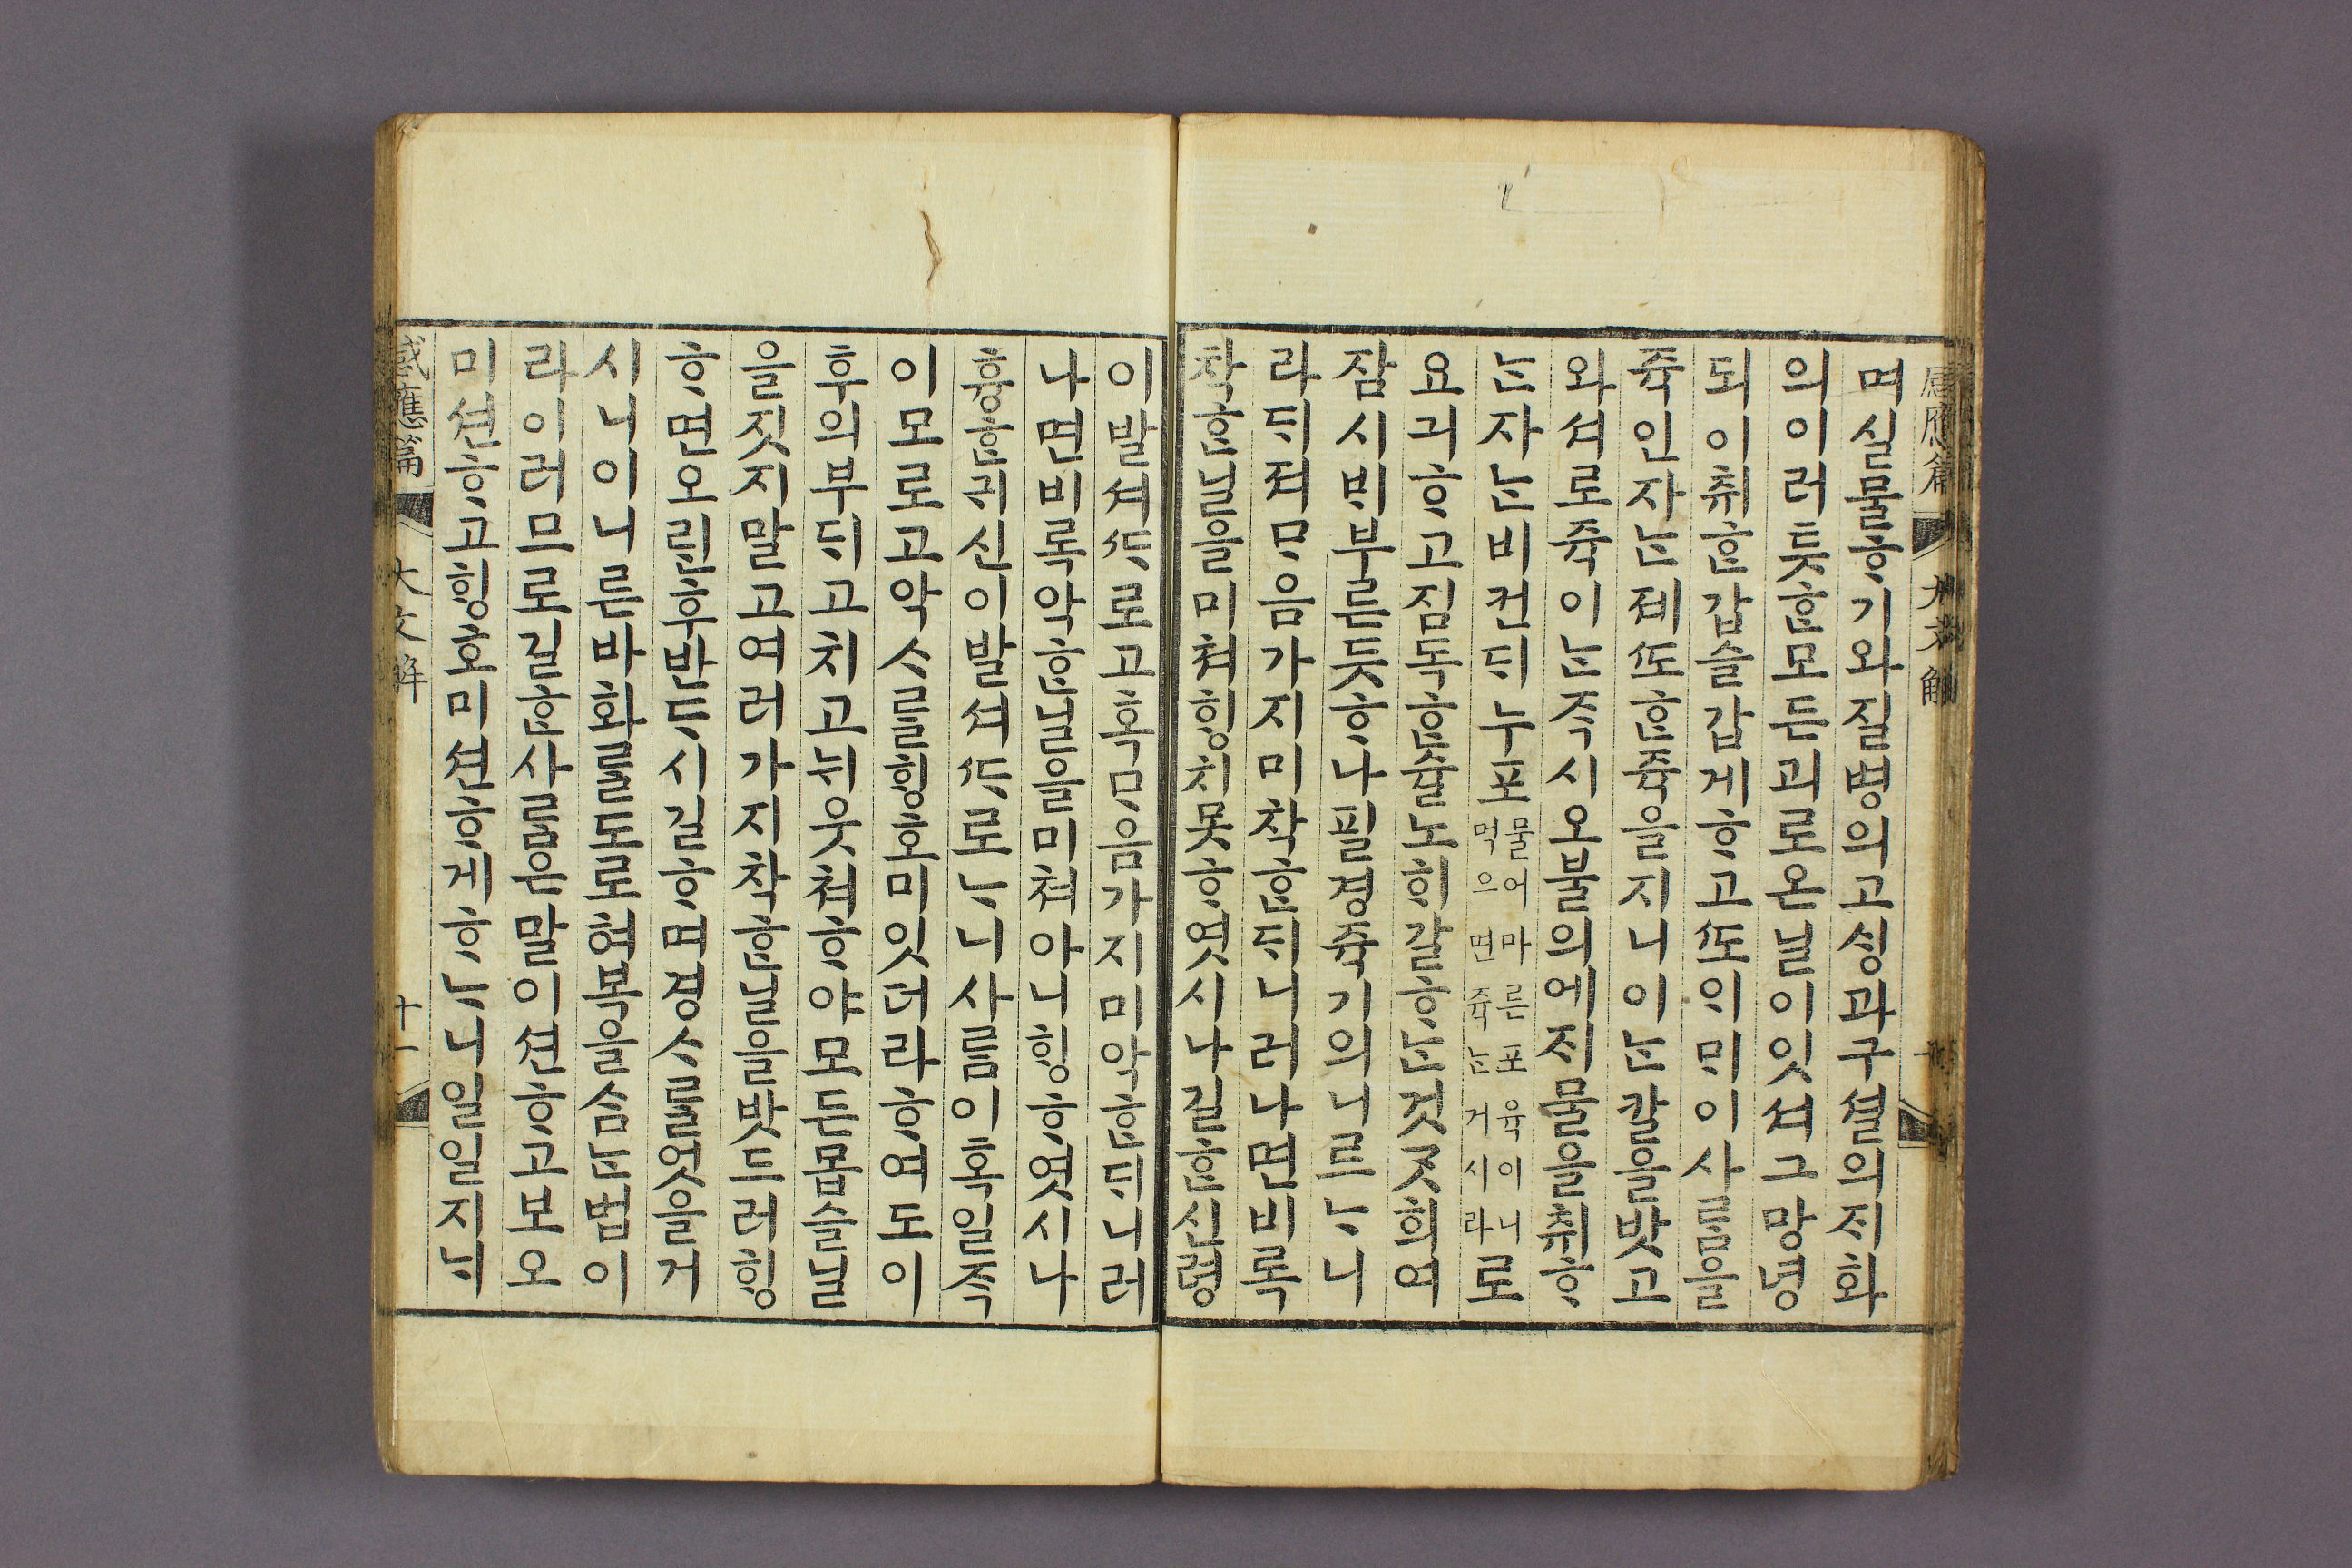 感應篇 大文解
며실물ᄒᆞ기와질병의고싱과구셜의ᄌᆡ화
의이러틋ᄒᆞᆫ모든괴로온일이잇셔그망녕
되이취ᄒᆞᆫ갑슬갑게ᄒᆞ고ᄯᅩ이ᄆᆡ이사ᄅᆞᆷ을
쥭인자ᄂᆞᆫ졔ᄯᅩᄒᆞᆫ쥭을지니이ᄂᆞᆫ칼을밧고
와셔로쥭이ᄂᆞᆫ즉시오불의에ᄌᆡ물을취ᄒᆞ
ᄂᆞᆫ자ᄂᆞᆫ비컨ᄃᆡ누포물어마른포육이니먹으면쥭ᄂᆞᆫ거시라로
요긔ᄒᆞ고짐독ᄒᆞᆫ쥴노ᄒᆡ갈ᄒᆞᄂᆞᆫ것ᄀᆞᆺᄒᆡ여
잠시ᄇᆡ부른듯ᄒᆞ나필경쥭기의니르ᄂᆞ니
라ᄃᆡ져ᄆᆞ음가지미착ᄒᆞᆫᄃᆡ니러나면비록
착ᄒᆞᆫ일을미쳐ᄒᆡᆼ치못ᄒᆞ엿시나길ᄒᆞᆫ신령
이발셔ᄯᆞ로고혹ᄆᆞ음가지미악ᄒᆞᆫᄃᆡ니러
나면비록악ᄒᆞᆫ일을미쳐아니ᄒᆡᆼᄒᆞ엿시나
흉ᄒᆞᆫ귀신이발셔ᄯᆞ로ᄂᆞ니사ᄅᆞᆷ이혹일즉
이모로고악ᄉᆞᄅᆞᆯᄒᆡᆼᄒᆞ미잇더라ᄒᆞ여도이
후의부ᄃᆡ고치고뉘웃쳐ᄒᆞ야모든몹슬일
을짓지말고여러가지착ᄒᆞᆫ일을밧드러ᄒᆡᆼ
ᄒᆞ면오ᄅᆡᆫ후반ᄃᆞ시길ᄒᆞ며경ᄉᆞᄅᆞᆯ엇을거
시니이니른바화ᄅᆞᆯ도로혀복을ᄉᆞᆷᄂᆞᆫ법이
라이러므로길ᄒᆞᆫ사ᄅᆞᆷ은말이션ᄒᆞ고보오
미션ᄒᆞ고ᄒᆡᆼᄒᆞ오미션ᄒᆞ게ᄒᆞᄂᆞ니일일지ᄂᆡ
感應篇 大文解 十一